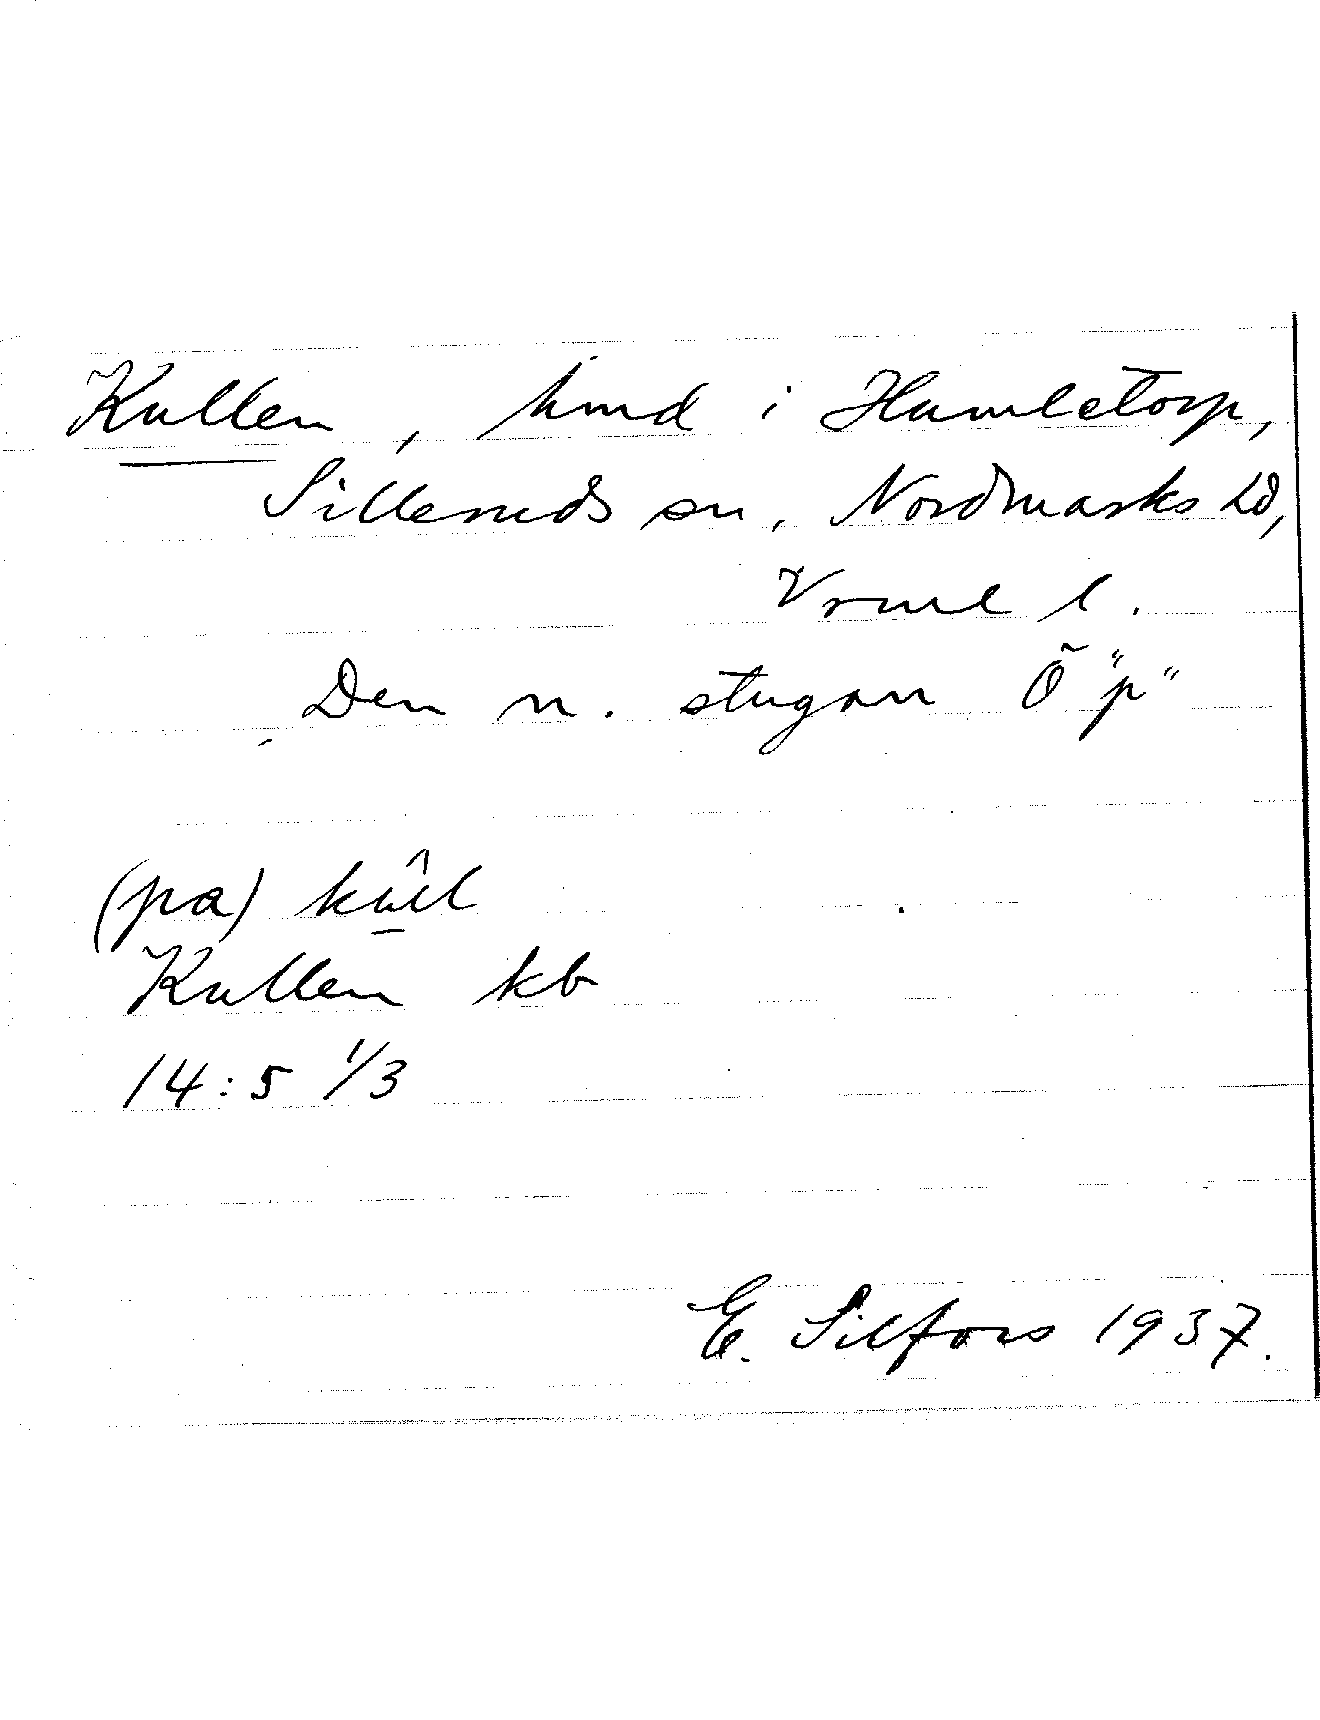 Kullen, hmd i Humletorp,
Silleruds sn, Nordmarks hd,
Vrml l.
Den n. stugan Ö "p"
(pa) kûll
Kullen kb
14:5 1/3
E. Silfors 1937.